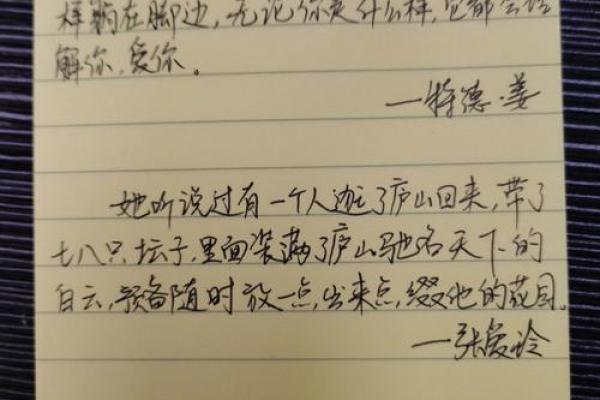 样躺在脚边,无论你是什么样,它都会
解你,爱你。
—特德·姜
她听说过有一个人逛了庐山回来,带了
七八只坛子,里面装满了庐山驰名天下的
白云,预备随时放一点出来点缀他的花园。
—张爱玲